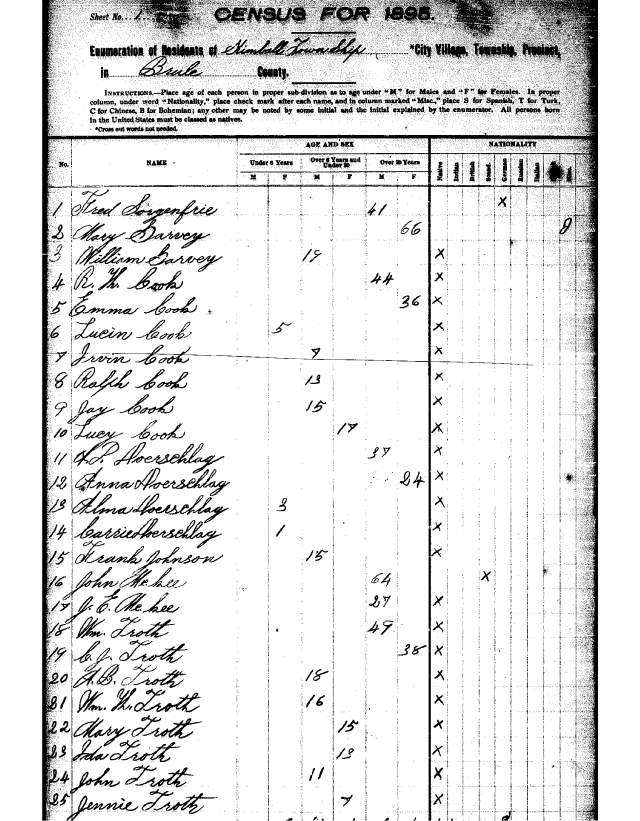 Sheet No. 1
CENSUS FOR 1895.
Enumeration of Residents of Kimball Township *City Village, Township, Precinct,
in Brule County.
INSTRUCTIONS.—Place age of each person in proper sub-division as to age under "M" for Males and "F" for Females. In proper
column, under word "Nationality," place check mark after each name, and in column marked "Misc., place S for Spanish, T for Turk,
C for Chinese, B for Bohemian; any other may be noted by some initial and the initial explained by the enumerator. All persons born
in the United States must be classed as natives.
*Cross out words not needed.
AGE AND SEX NATIONALITY
No. NAME Under 6 Years Over 6 Years and Under 20 Over 20 Years Native Indian British Scand. German Russian Italian
M F M F M F
1 Fred Sorgenfrie 41 X
2 Mary Garvey 66
3 William Garvey 19 X
4 R. H. Cook 44 X
5 Emma Cook 36 X
6 Lucin Cook 5 X
7 Irvin Cook 7 X
8 Ralph Cook 13 X
9 Jay Cook 15 X
10 Lucy Cook 17 X
11 Doerschlag 37 X
12 Anna Doerschlag 24 X
13 Alma Doerschlag 3 X
14 Carrie Doerschlag 1 X
15 Frank Johnson 15 X
16 John McKee 64 X
17 J. E. McKee 27 X
18 Wm. Troth 49 X
19 C. J. Troth 38 X
20 A. B. Troth 18 X
21 Wm. H. Troth 16 X
22 Mary Troth 15 X
23 Ida Troth 13 X
24 John Troth 11 X
25 Jennie Troth 7 X